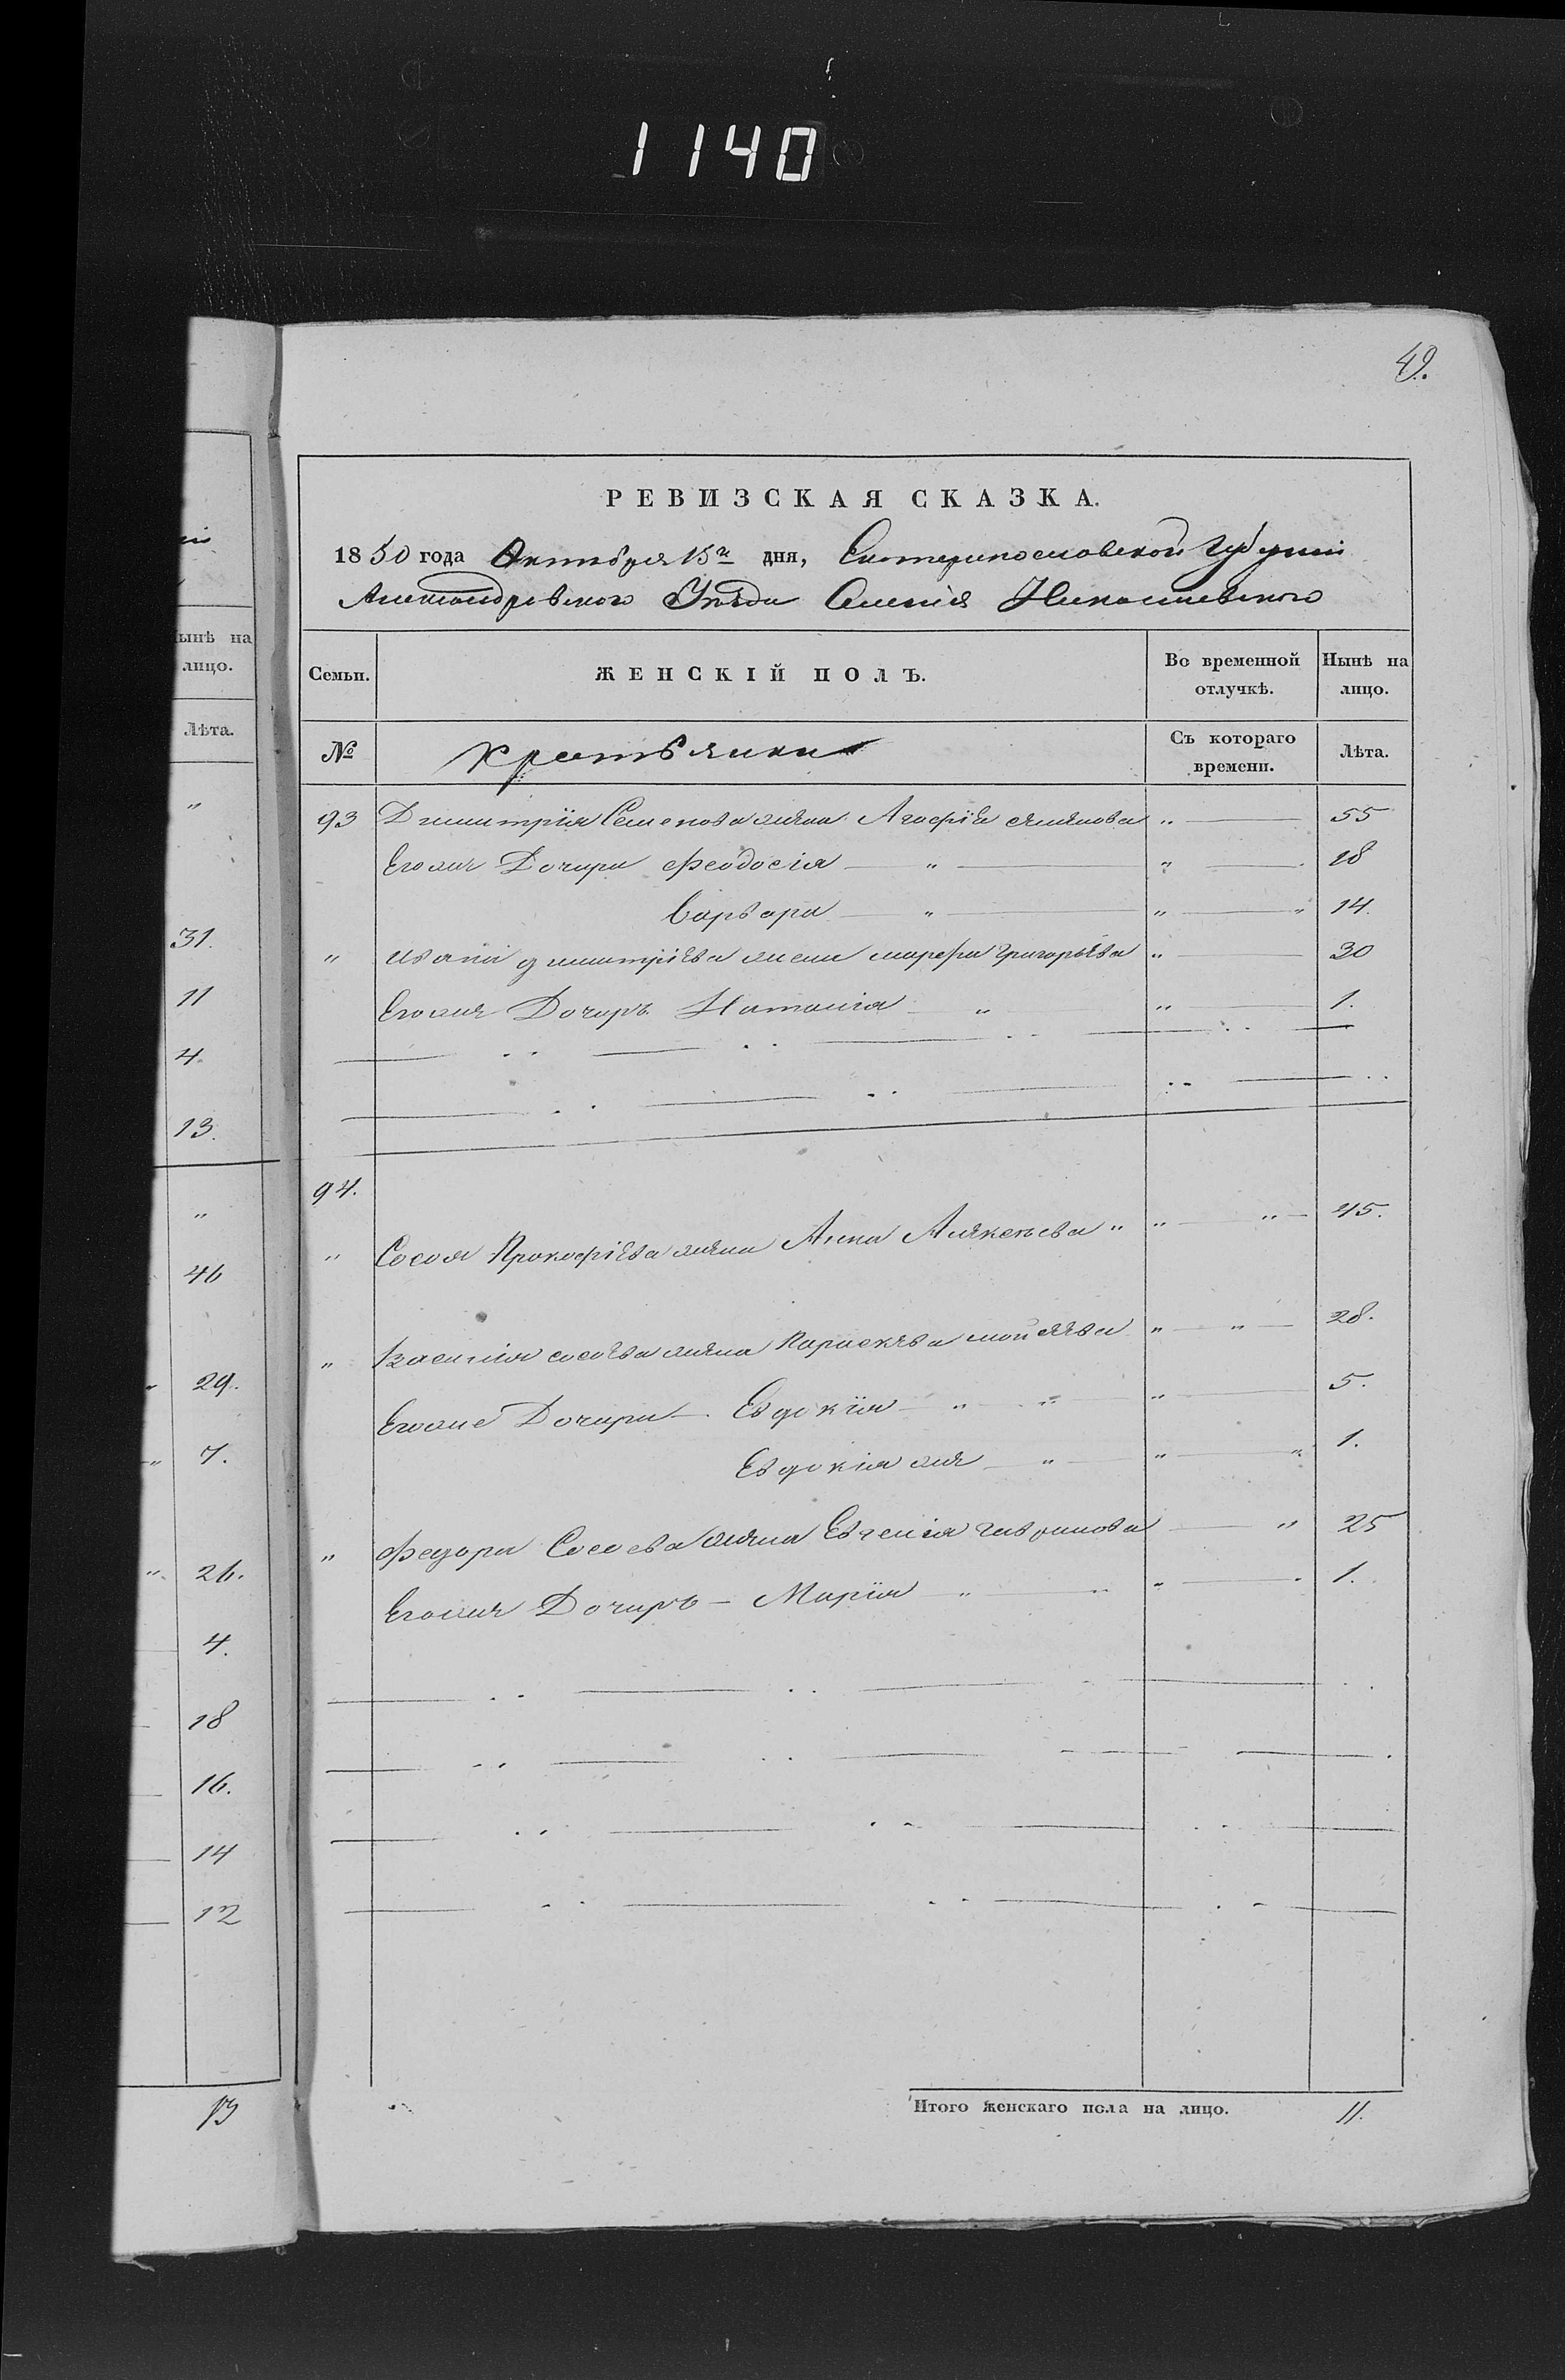 1140
49.
РЕВИЗСКАЯ СКАЗКА.
1850 года Октября 15го дня, Екатеринославской Губерніи
Александровского Уезда Селенія Николаевского
Семьи.
ЖЕНСКІЙ ПОЛЪ.
Во временной отлучкѣ.
Нынѣ на лицо.
№
Крестьянки
Съ котораго времени.
Лѣта.
93 Димитрія Семенова жена Агафіа " 55
Егожя Дочери Феодосія " " 18
Варвара " " " 14.
" Ивана Димитріева жена Марфа Григорьева " 30
Егожя Дочерь Наталія " " 1.
94.
" Сосоя Прокофіева жена Анна " " " 45.
" Василия Сосоева жена Параскева " " 28.
Егоже Дочери Евдокія " " " 5.
Евдокія жя " " " 1.
" Федора Сосоева жена Евгенія Гаврилова " 25
Егожя Дочерь Марія " " " 1.
Итого женскаго пола на лицо. 11.
ынѣ на
лицо.
Лѣта.
"
31.
11
4.
13.
"
46
29.
7.
26.
4.
18
16.
14
12
13